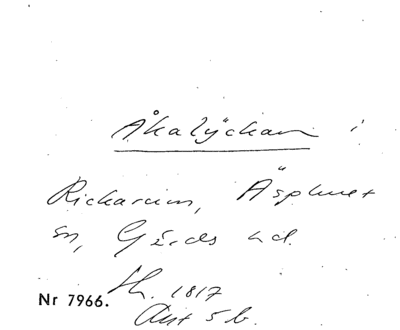 Åkalyckan i
Rickarum, Äsphult
sn, Gärds hd.
Sk. 1817
Akt 5 b.
Nr 7966.